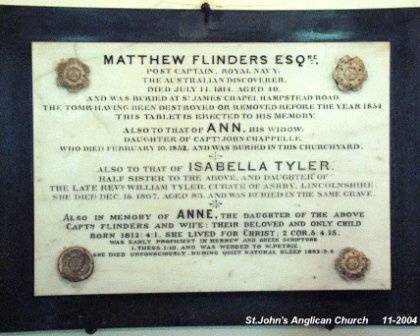 MATTHEW FLINDERS ESQRE,
POST CAPTAIN, ROYAL NAVY:
THE AUSTRALIAN DISCOVERER.
DIED JULY 14. 1814. AGED 40.
AND WAS BURIED AT ST JAMES CHAPEL, HAMPSTEAD ROAD.
THE TOMB HAVING BEEN DESTROYED OR REMOVED BEFORE THE YEAR 1854
THIS TABLET IS ERECTED TO HIS MEMORY.
ALSO TO THAT OF ANN, HIS WIDOW:
DAUGHTER OF CAPTN JOHN CHAPPELLE.
WHO DIED FEBRUARY 10. 1852. AND WAS BURIED IN THIS CHURCHYARD.
ALSO TO THAT OF ISABELLA TYLER,
HALF SISTER TO THE ABOVE, AND DAUGHTER OF
THE LATE REVD WILLIAM TYLER. CURATE OF ASHBY, LINCOLNSHIRE
SHE DIED DEC. 1867. AGED AND WAS BURIED IN THE SAME GRAVE.
ALSO IN MEMORY OF ANNE, THE DAUGHTER OF THE ABOVE
CAPTN FLINDERS AND WIFE: THEIR BELOVED AND ONLY CHILD
BORN 1812: 4: 1. SHE LIVED FOR CHRIST; 2 COR. 5. 4.15:
WAS EARLY PROFICIENT IN HEBREW AND GREEK SCRIPTURE
1. THESS 1.10. AND WAS WEDDED TO W. PETRIE.
SHE DIED UNCONSCIOUSLY, DURING QUIET NATURAL SLEEP
St.John's Anglican Church 11-2004